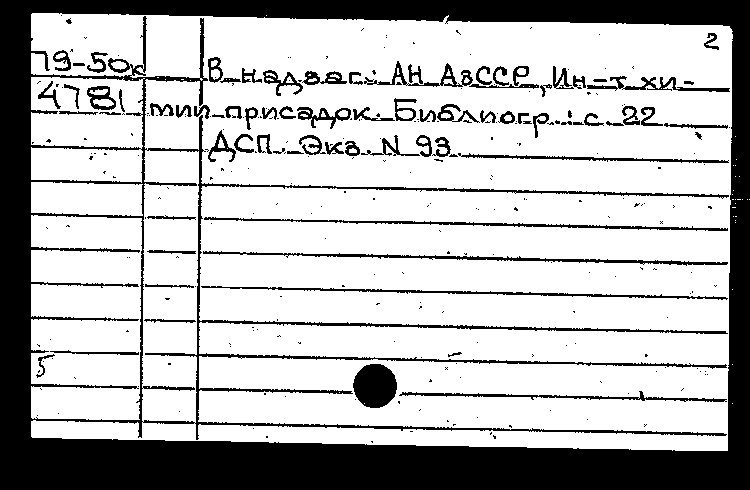 2
79-50к В надзаг.: АН АзССР, Ин-т хи-
4781 мии присадок. Библиогр.: с. 22
ДСП. Экз. N 93.
5